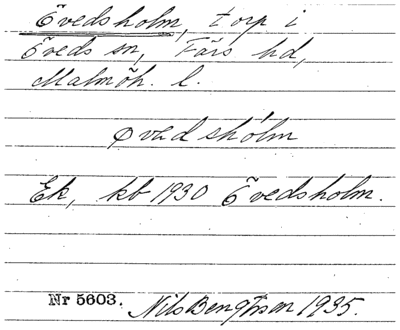 Övedsholm, torp i
Öveds sn, Färs hd,
Malmöh. l.
øvedshólm
Ek, kb 1930 Övedsholm.
Nr 5603. Nils Bengtsson 1935.